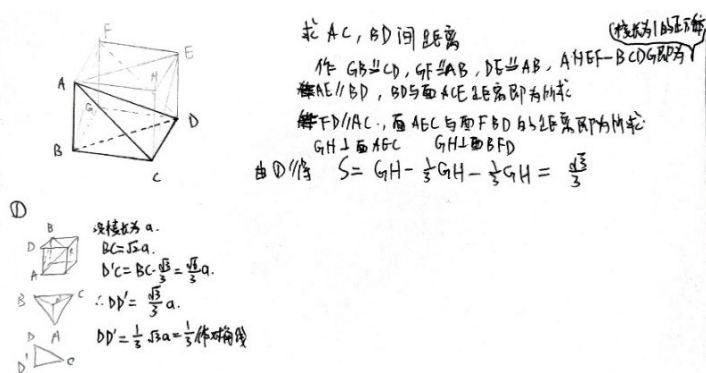 求 AC, BD 间距离
(棱长为1的正方体)
作 GB≌CD, GF≌AB, DE≌AB, AHEF-BCDG即为
AE∥BD, BD与面ACE距离即为所求
FD∥AC, 面AEC与面FBD的距离即为所求
GH⊥面AEC GH⊥面BFD
由①得 S=GH-1/3GH-1/3GH=√3/3
F
E
A
H
G
D
B
C
①
设棱长为a.
BC=√2a.
D'C=BC·√3/3=√6/3a.
∴DD'=√3/3a.
DD'=1/3√3a=1/3体对角线
B
D
C
A
B
C
D
A
D'
C